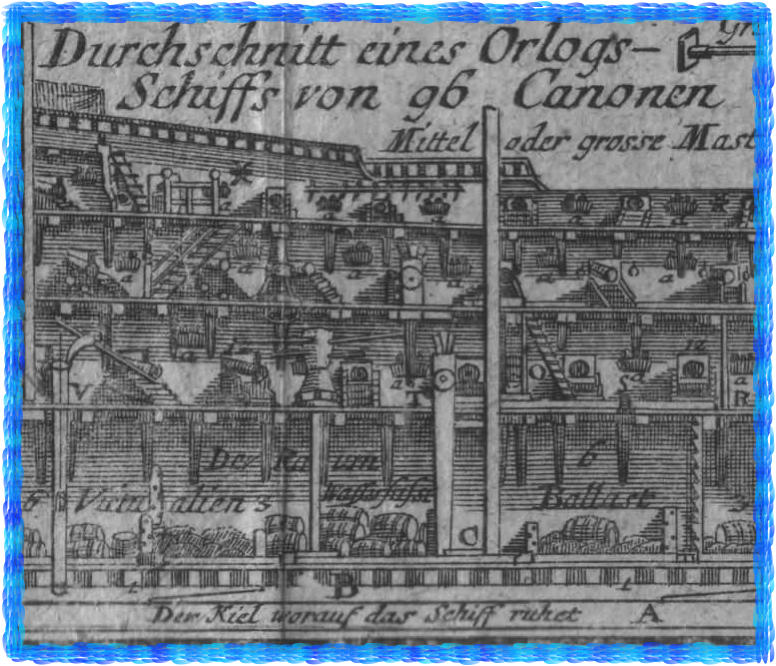 Durchschnitt eines Orlogs-
Schiffs von 96 Canonen
Mittel oder grosse Mast
a a a a
a a a a
a a a 12
V a T S a R
Der Raum 6
6 Victualien 3 Wasserfässer Ballast
t B t
Der Kiel worauf das Schiff ruhet A